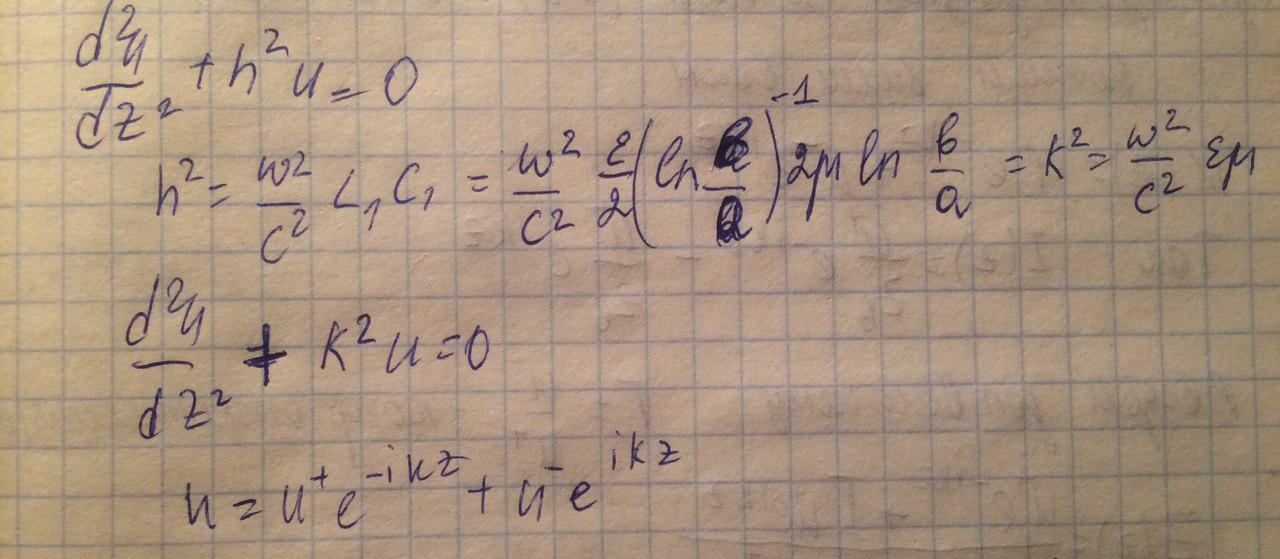 d²u/dz² + h²u = 0
h² = ω²/c² L₁C₁ = ω²/c² ε/2 (ln b/a)⁻¹ 2μ ln b/a = k² = ω²/c² εμ
d²u/dz² + k²u = 0
u = u⁺e⁻ⁱᵏᶻ + u⁻eⁱᵏᶻ